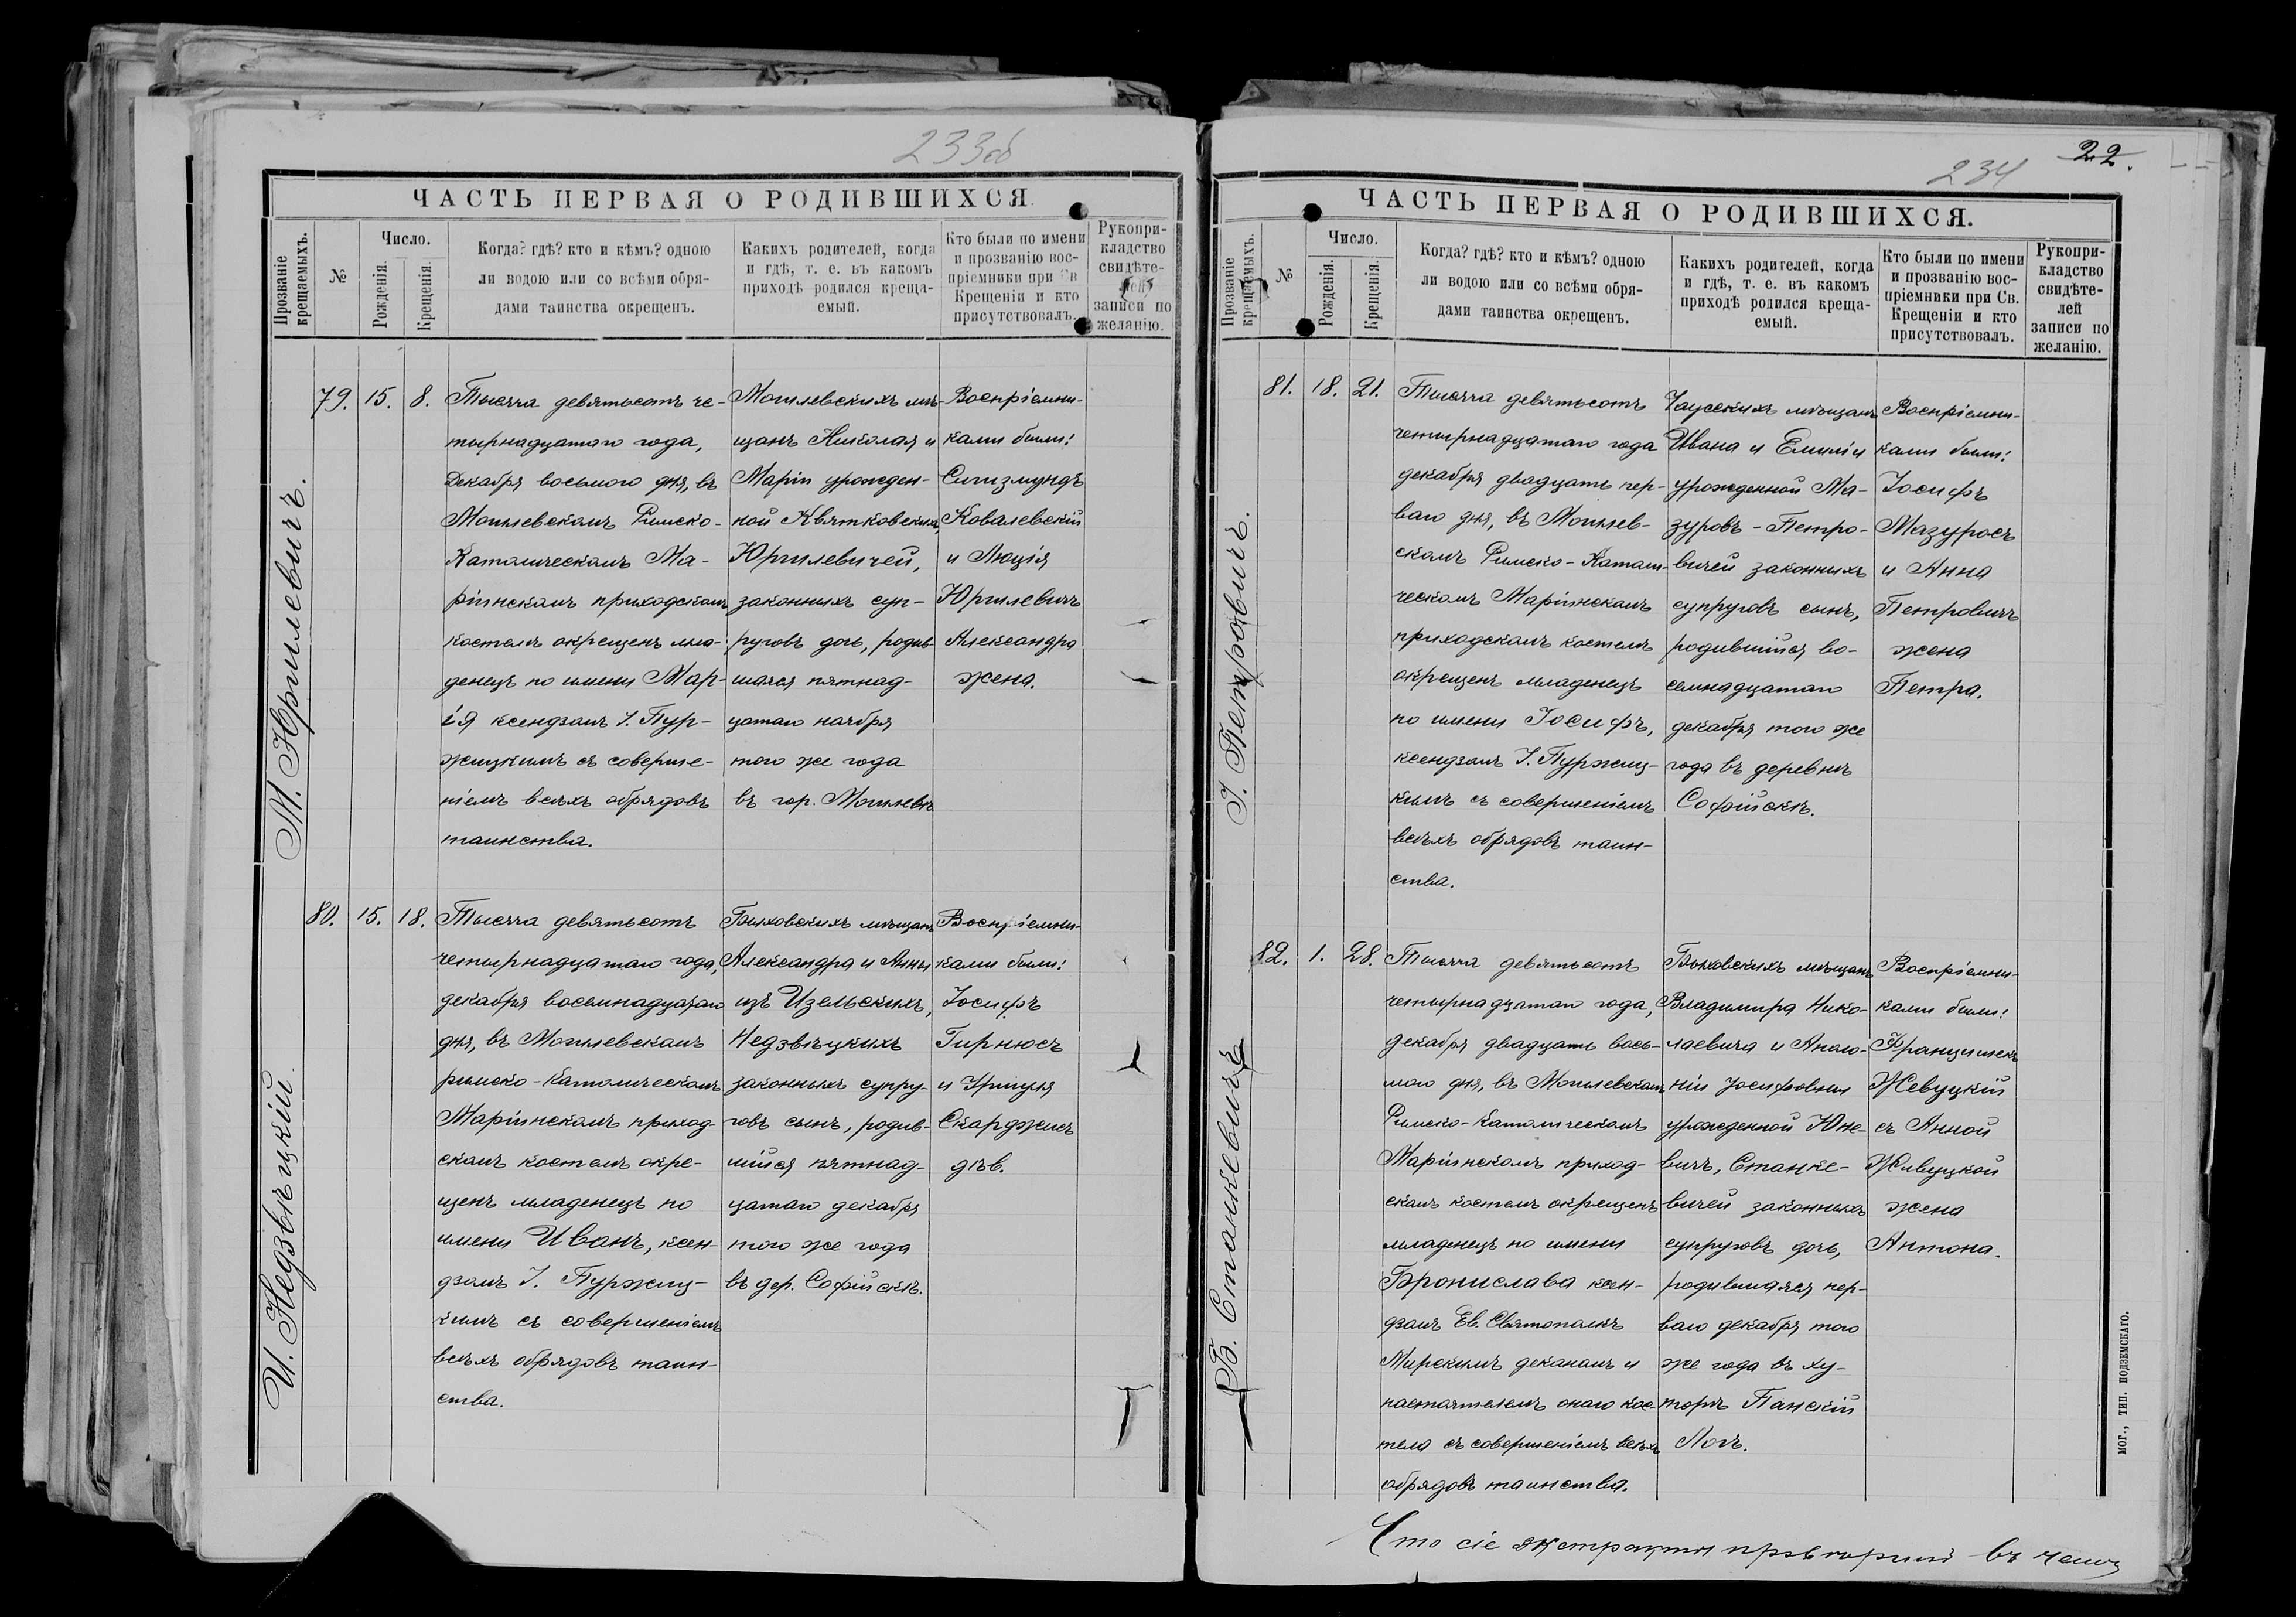 233об
ЧАСТЬ ПЕРВАЯ О РОДИВШИХСЯ
Прозваніе крещаемыхъ.
№
Число.
Рожденія.
Крещенія.
Когда? гдѣ? кто и кѣмъ? одною
ли водою или со всѣми обря-
дами таинства окрещенъ.
Какихъ родителей, когда
и гдѣ, т. е. въ какомъ
приходѣ родился креща-
емый.
Кто были по имени
и прозванію вос-
пріемники при Св
Крещеніи и кто
присутствовалъ.
Рукопри-
кладство
свидѣте-
лей
записи по
желанію.
М. Юргилевичъ.
79.
15.
8.
Тысяча девятьсотъ че-
тырнадцатаго года,
Декабря восьмого дня, въ
Могилевскомъ Римско-
Католическомъ Ма-
ріинскомъ приходскомъ
костелѣ окрещенъ мла-
денецъ по имени Мар-
ія ксендзомъ І. Пур-
жицкимъ съ соверше-
ніемъ всѣхъ обрядовъ
таинства.
Могилевскихъ мѣ-
щанъ Николая и
Маріи урожден-
ной Квятковскихъ,
Юргилевичей,
законныхъ суп-
руговъ дочь, родив-
шаяся пятнад-
цатаго ноября
того же года
въ гор. Могилевѣ
Воспріемни-
ками были:
Сигизмундъ
Ковалевскій
и Люція
Юргилевичъ
Александра
жена.
И. Недзвѣцкій.
80.
15.
18.
Тысяча девятьсотъ
четырнадцатаго года,
декабря восемнадцатаго
дня, въ Могилевскомъ
римско-католическомъ
Маріинскомъ приход-
скомъ костелѣ окре-
щенъ младенецъ по
имени Иванъ, ксен-
дзомъ І. Пуржиц-
кимъ съ совершеніемъ
всѣхъ обрядовъ таин-
ства.
Быховскихъ мѣщанъ
Александра и Анны
изъ Изельскихъ,
Недзвѣцкихъ
законныхъ супру-
говъ сынъ, родив-
шійся пятнад-
цатаго декабря
того же года
въ дер. Софійскѣ.
Воспріемни-
ками были:
Іосифъ
Гирнюсъ
и Уршуля
Скарджисъ
дѣв.
22.
234
ЧАСТЬ ПЕРВАЯ О РОДИВШИХСЯ.
Прозваніе крещаемыхъ.
№
Число.
Рожденія.
Крещенія.
Когда? гдѣ? кто и кѣмъ? одною
ли водою или со всѣми обря-
дами таинства окрещенъ.
Какихъ родителей, когда
и гдѣ, т. е. въ какомъ
приходѣ родился креща-
емый.
Кто были по имени
и прозванію вос-
пріемники при Св.
Крещеніи и кто
присутствовалъ.
Рукопри-
кладство
свидѣте-
лей
записи по
желанію.
І. Петровичъ.
81.
18.
21.
Тысяча девятьсотъ
четырнадцатаго года
декабря двадцать пер-
ваго дня, въ Могилев-
скомъ Римско-Католи-
ческомъ Маріинскомъ
приходскомъ костелѣ
окрещенъ младенецъ
по имени Іосифъ,
ксендзомъ І. Пуржиц-
кимъ съ совершеніемъ
всѣхъ обрядовъ таин-
ства.
Чаусскихъ мѣщанъ
Ивана и Емиліи
урожденной Ма-
зуровъ-Петро-
вичей законныхъ
супруговъ сынъ,
родившійся во-
семнадцатаго
декабря того же
года въ деревнѣ
Софійскѣ.
Воспріемни-
ками были:
Іосифъ
Мазуросъ
и Анна
Петровичъ
жена
Петра.
Б. Станкевичъ
82.
1.
28.
Тысяча девятьсотъ
четырнадцатаго года,
декабря двадцать вось-
мого дня, въ Могилевскомъ
Римско-Католическомъ
Маріинскомъ приход-
скомъ костелѣ окрещенъ
младенецъ по имени
Бронислава ксен-
дзомъ Ев. Святополкъ
Мирскимъ деканомъ и
настоятелемъ онаго кос-
тела съ совершеніемъ всѣхъ
обрядовъ таинства.
Быховскихъ мѣщанъ
Владимира Нико-
лаевича и Аполо-
ніи Іосифовны
урожденной Юне-
вичъ, Станке-
вичей законныхъ
супруговъ дочь,
родившаяся пер-
ваго декабря того
же года въ ху-
торѣ Панскій
Логъ.
Воспріемни-
ками были:
Францишекъ
Жевуцкій
съ Анной
Жевуцкой
жена
Антона.
Что сіе экстрактъ въ чемъ
МОГ., ТИП. ПОДЗЕМСКАГО.